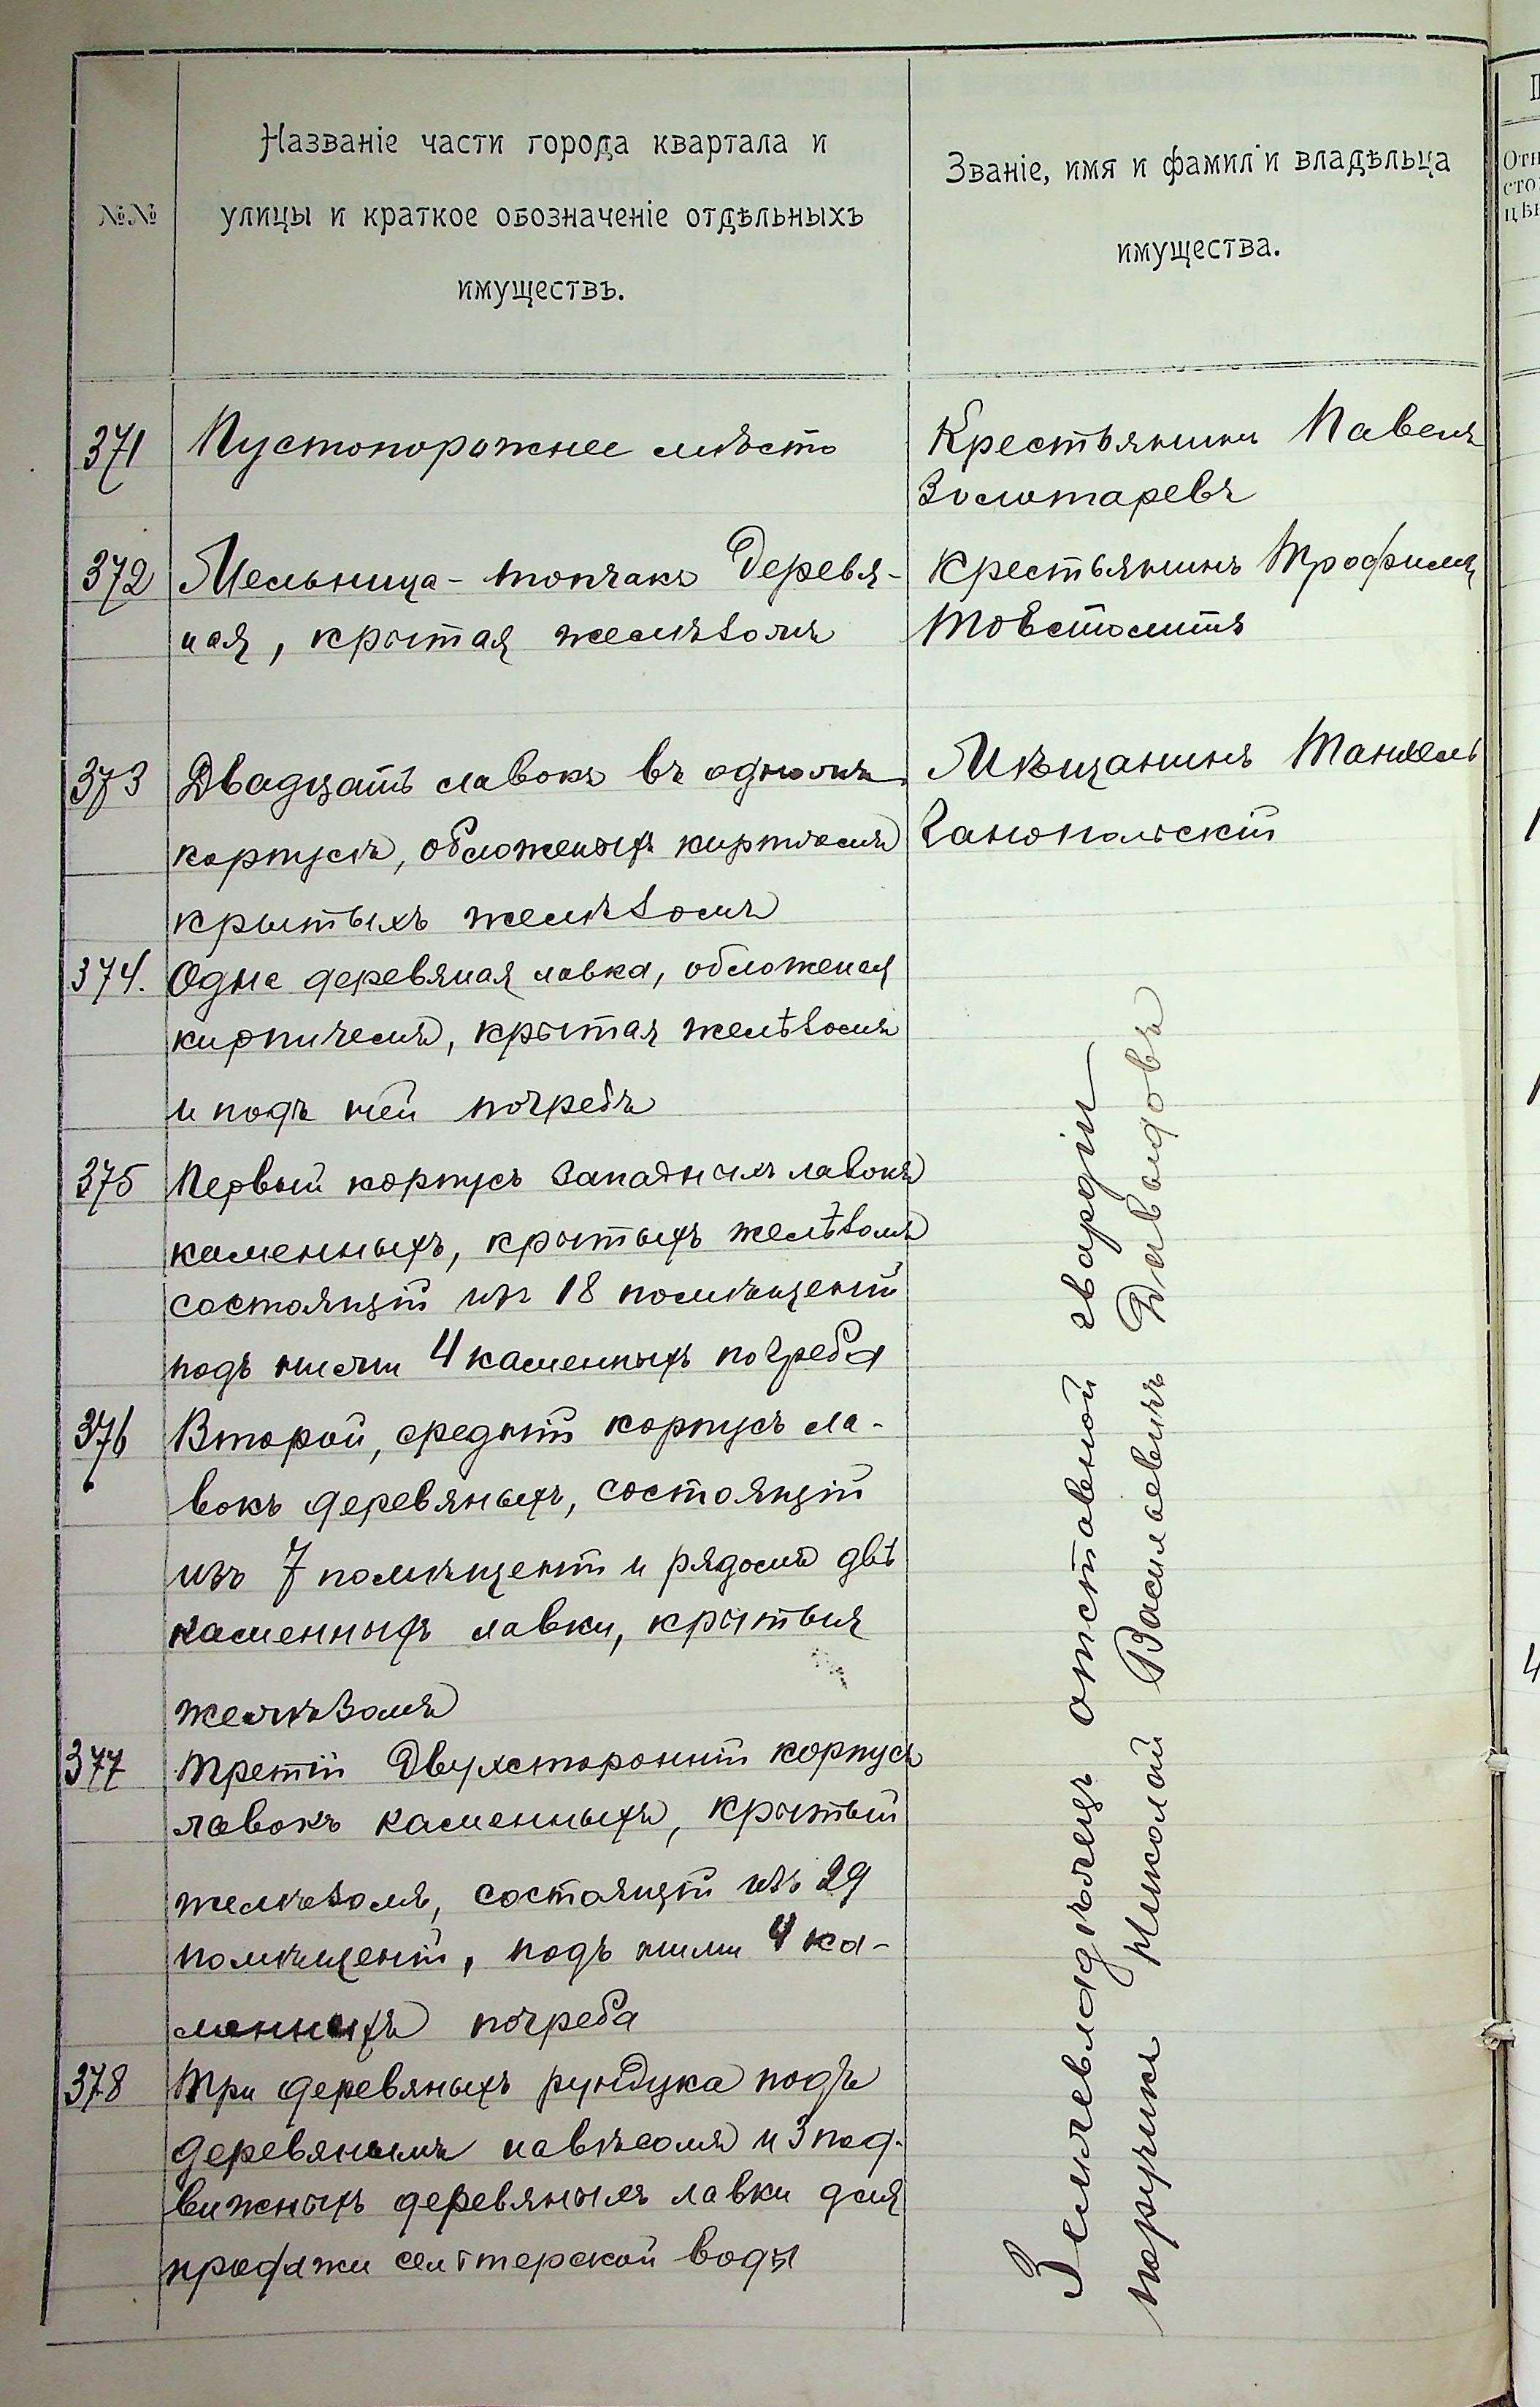 №№
Названіе части города квартала и
улицы и краткое обозначеніе отдѣльныхъ
имуществъ.
Званіе, имя и фамил и владѣльца
имущества.
371 Пустопорожнее мѣсто
Крестьянинъ Павелъ
Золотаревъ
372 Мельница-топчакъ деревя-
ная, крытая желѣзомъ
Крестьянинъ Трофимъ
Товстолитъ
373 Двадцать лавокъ въ одномъ
корпусѣ, обложеныхъ кирпичемъ
крытыхъ желѣзомъ
Мѣщанинъ
Ганопольскій
374. Одна деревяная лавка, обложеная
кирпичемъ, крытая желѣзомъ
и подъ ней погребъ
375 Первый корпусъ западныхъ лавокъ
каменныхъ, крытыхъ желѣзомъ
состоящій изъ 18 помѣщеній
подъ ними 4 каменныхъ погреба
376 Второй, средній корпусъ ла-
вокъ деревяныхъ, состоящій
изъ 7 помѣщеній и рядомъ двѣ
каменныхъ лавки, крытыя
желѣзомъ
377 Третій двухсторонній корпусъ
лавокъ каменныхъ, крытый
желѣзомъ, состоящій изъ 29
помѣщеній, подъ ними 4 ка-
менныхъ погреба
378 Три деревяныхъ рундука подъ
деревянымъ навѣсомъ и 3 под-
вижныхъ деревяныхъ лавки для
продажи сельтерской воды
Землевладѣлецъ отставной гвардіи
поручикъ Николай Васильевичъ Давыдовъ